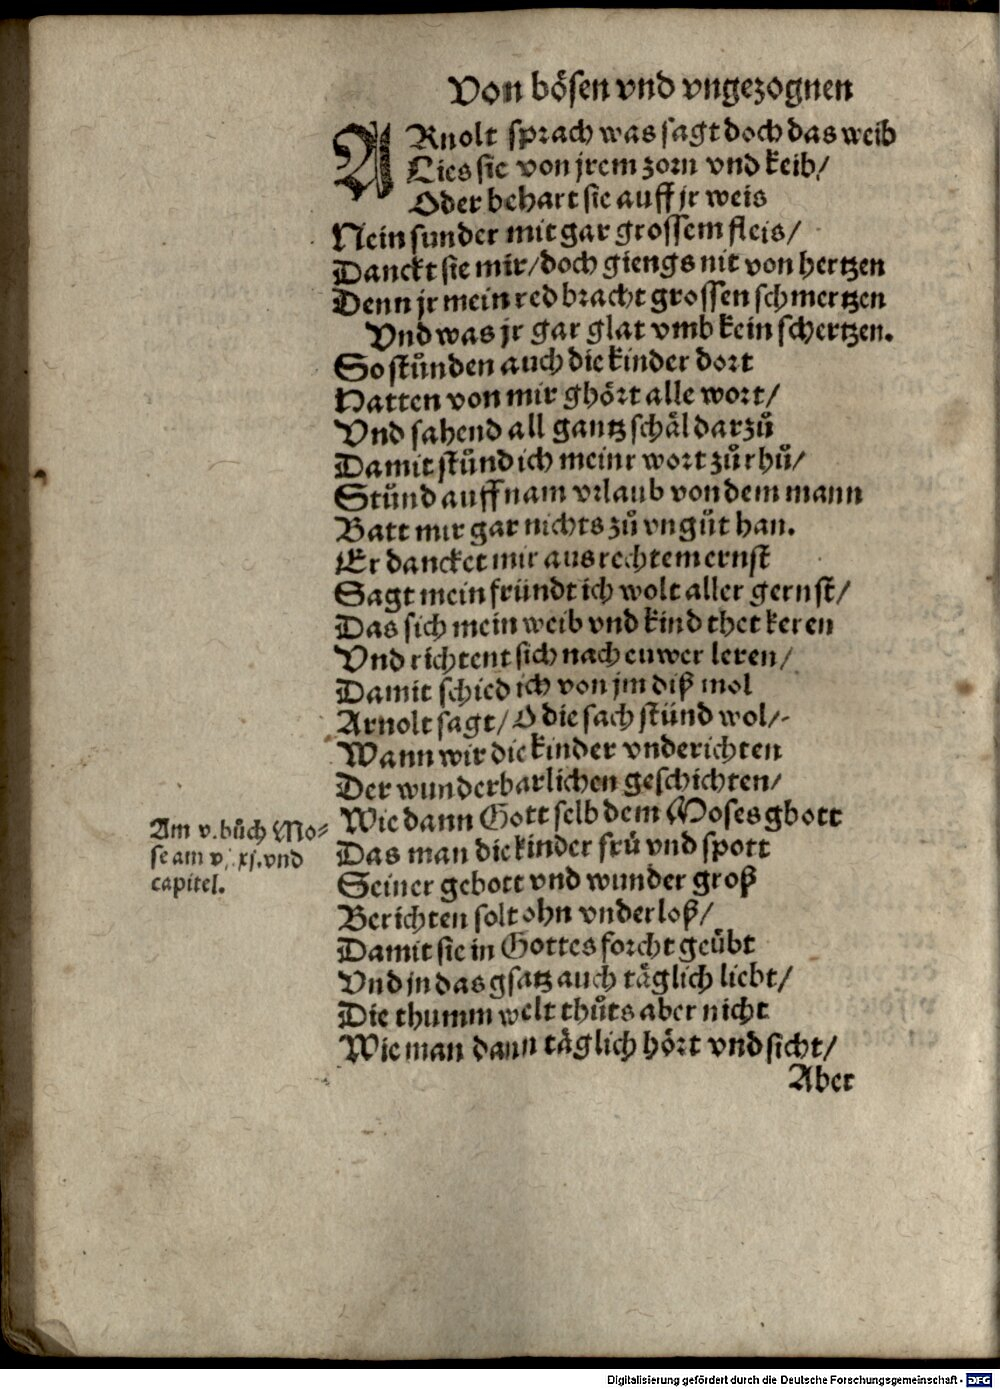 Von bösen vnd vngezognen
ARnolt sprach was sagt doch das weib
Lies sie von jrem zorn vnd keib/
Oder behart sie auff jr weis
Nein sunder mit gar grossem fleis/
Danckt sie mir/doch giengs nit von hertzen
Denn jr mein red bracht grossen schmertzen
Vnd was jr gar glat vmb kein schertzen.
So stünden auch die kinder dort
Hatten von mir ghört alle wort/
Vnd sahend all gantz schäl darzů
Damit stünd ich meinr wort zů rhů/
Stünd auff nam vrlaub von dem mann
Batt mir gar nichts zů vngůt han.
Er dancket mir aus rechtem ernst
Sagt mein fründt ich wolt aller gernst/
Das sich mein weib vnd kind thet keren
Vnd richtent sich nach euwer leren/
Damit schied ich von jm diß mol
Arnolt sagt/O die sach stünd wol/
Wann wir die kinder vnderichten
Der wunderbarlichen geschichten/
Wie dann Gott selb dem Moses gbott
Das man die kinder frü vnd spott
Seiner gebott vnd wunder groß
Berichten solt ohn vnderloß/
Damit sie in Gottes forcht geübt
Vnd jn das gsatz auch täglich liebt/
Die thumm welt thůts aber nicht
Wie man dann täglich hört vnd sicht/
Aber
Am v. bůch Mo-
se am v. xj. vnd
capitel.
Digitalisierung gefördert durch die Deutsche Forschungsgemeinschaft - DFG